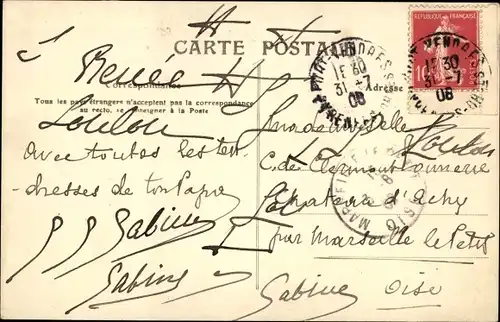 CARTE POSTALE
Renée
Correspondance
Tous les pays étrangers n'acceptent pas la correspondance
au recto, se renseigner à la Poste
Loulou
avec toutes les ten
dresses de ton Papa
Sabine
Sabine
REPUBLIQUE FRANÇAISE
10
PORT-VENDRES
1E 30
31 -7
08
PORT-VENDRES
1E 30
31 -7
08
Adresse
Mademoiselle
Loulou
C. de Clermont Tonnerre
d'Achy
par Marseille le Petit
Oise
Sabine
MARSEILLE
OISE